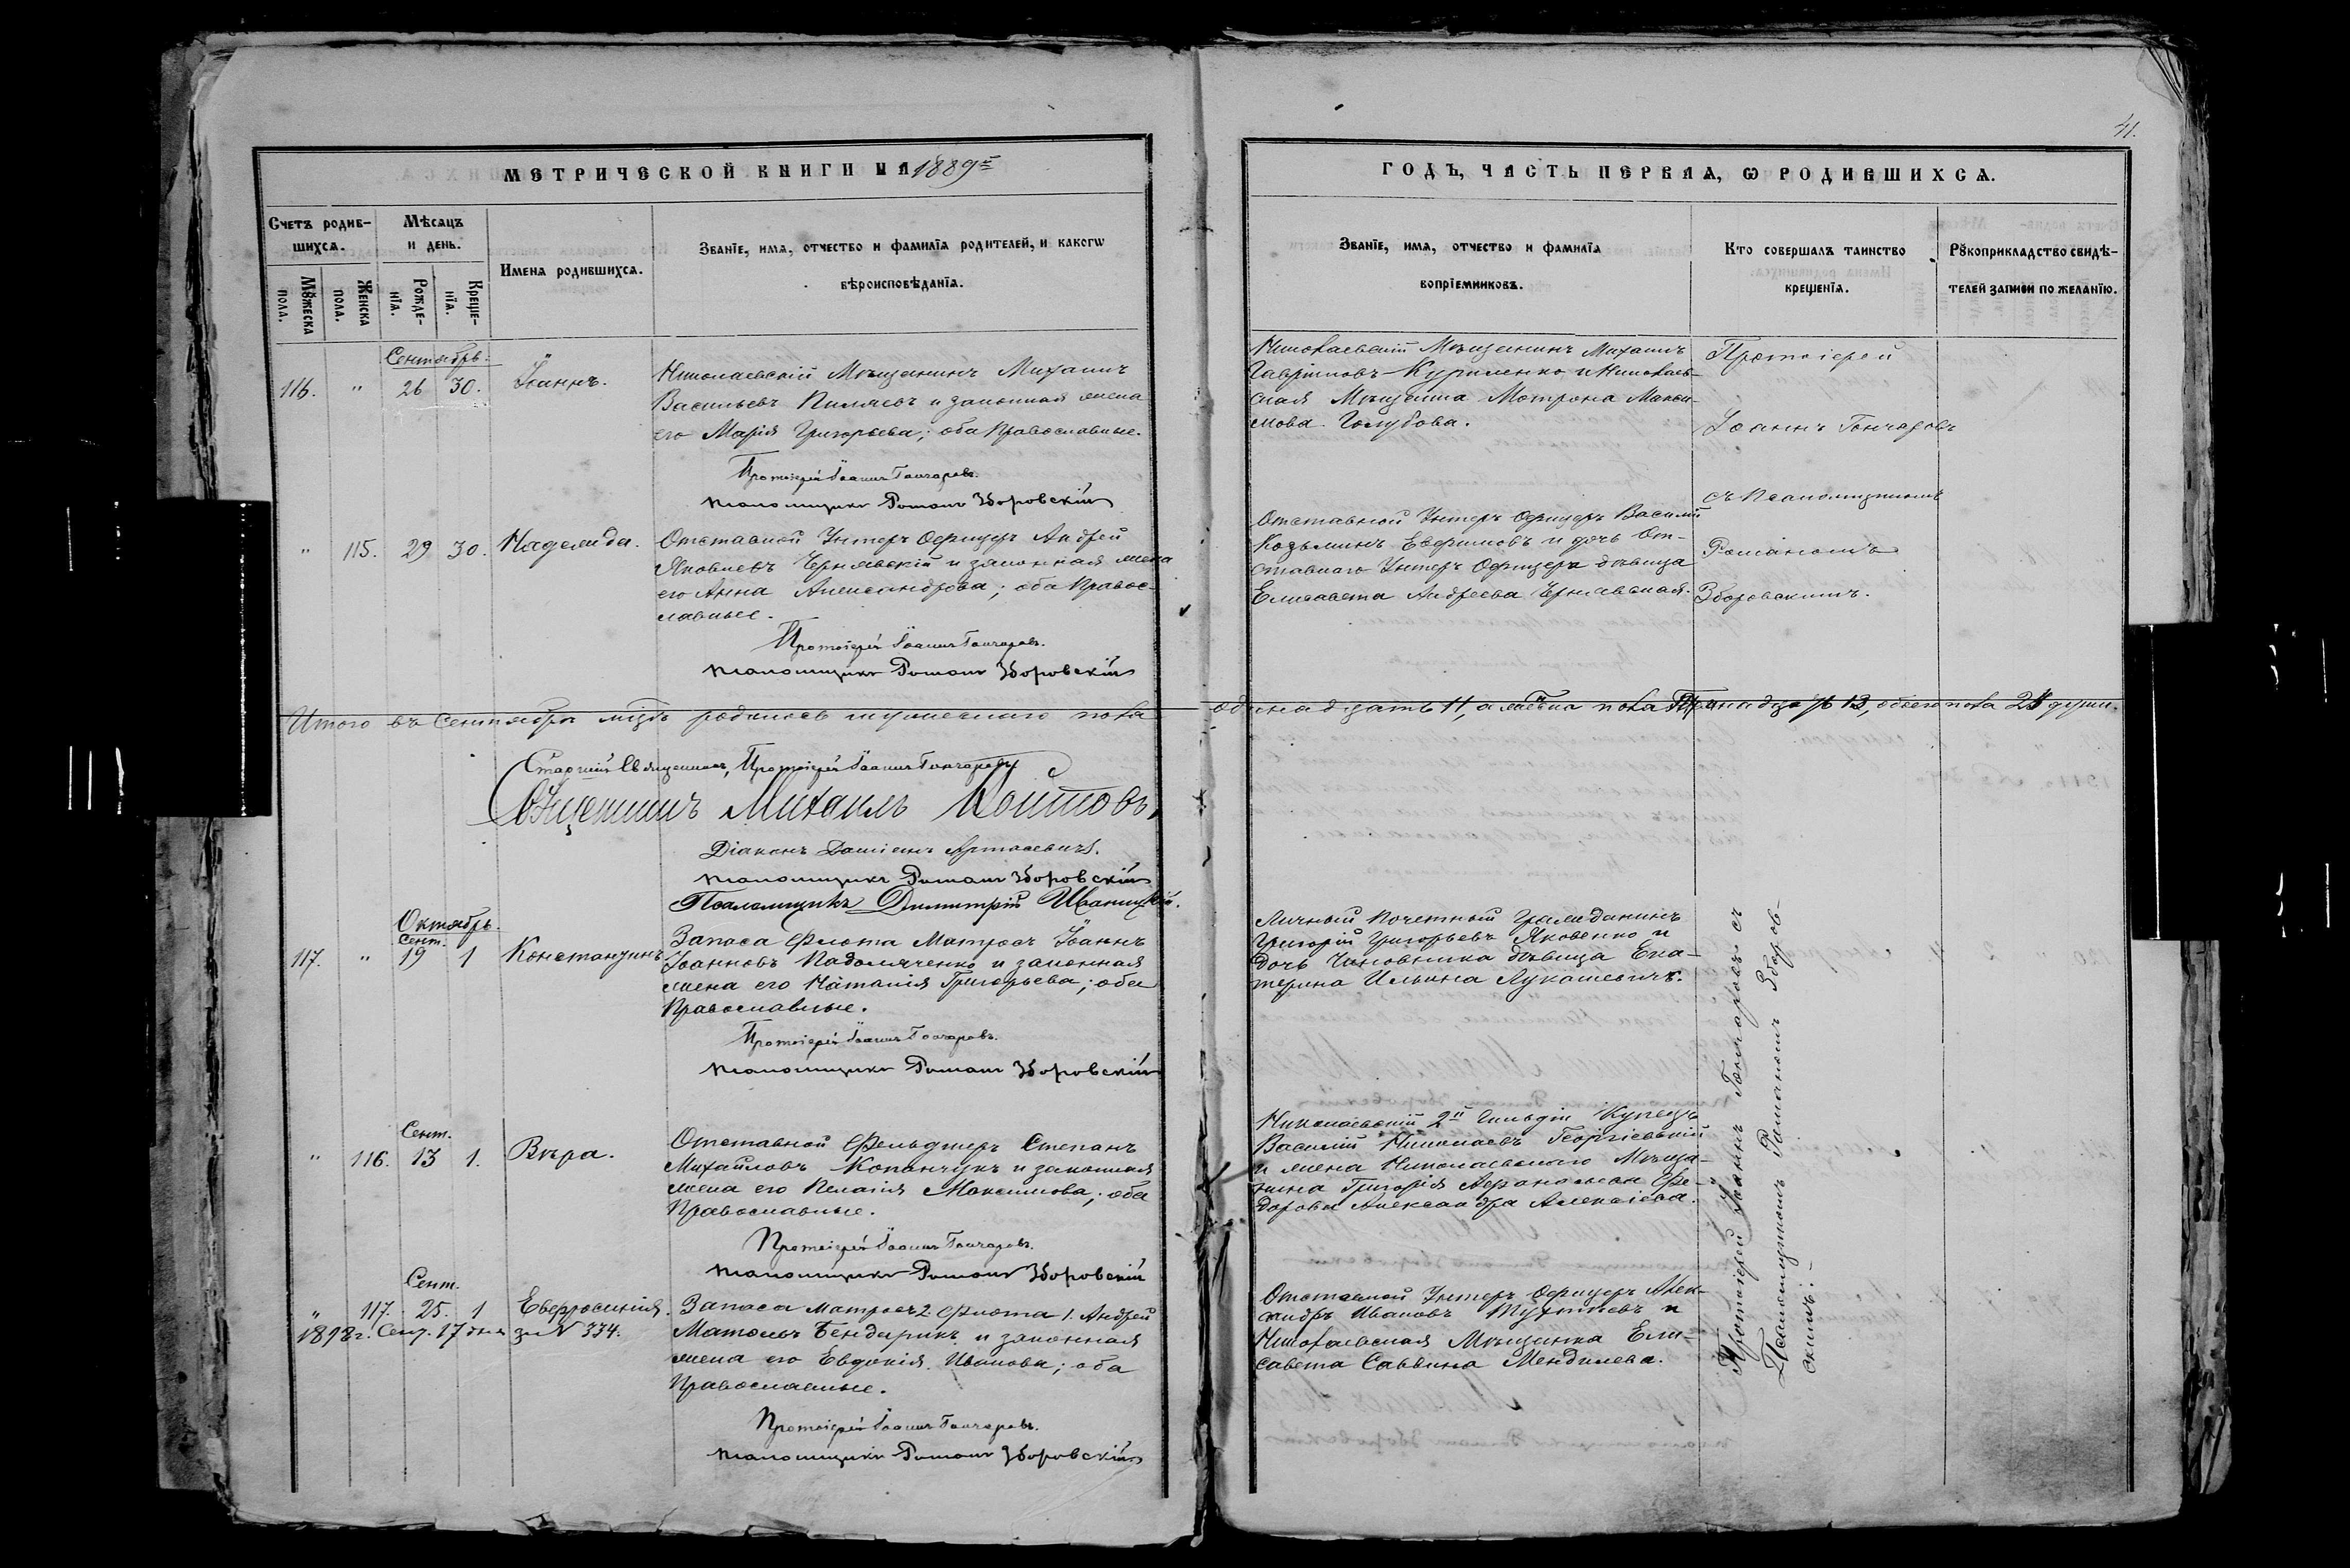 41.
МЕТРИЧЕСКОЙ КНИГИ НА 1889й
ГОДЪ, ЧАСТЬ ПЕРВАЯ, Ѡ РОДИВШИХСѦ.
Счетъ родив-
шихсѧ.
Мѣсѧцъ
и день.
Мꙋжеска
пола.
Женска
пола.
Рожде-
нїѧ.
Креще-
нїѧ.
Имена родившихсѧ.
Званїе, имѧ, отчество и фамилїѧ родителей, и какогѡ
вѣроисповѣданїѧ.
Званїе, имѧ, отчество и фамилїѧ
воспрїемниковъ.
Кто совершалъ таинство
крещенїѧ.
Рꙋкоприкладство свидѣ-
телей записи по желанїю.
Сентябрь.
116. " 26 30. Іоаннъ.
Николаевскій Мѣщанинъ Михаилъ
Васильевъ Пиляевъ и законная жена
его Марія Григорьева; оба Православные.
Протоіерей Іоаннъ Гончаровъ.
Псаломщикъ Романъ Зборовскій
Николаевскій Мѣщанинъ Михаилъ
Гавріиловъ Куриленко и Николаев-
ская Мѣщанка Матрона Макси-
мова Голубова.
Протоіерей
Іоаннъ Гончаровъ
съ Псаломщикомъ
Романомъ
Зборовскимъ.
" 115. 29 30. Надежда.
Отставной Унтеръ Офицеръ Андрей
Яковлевъ Чернявскій и законная жена
его Анна Александрова; оба Правос-
лавные.
Протоіерей Іоаннъ Гончаровъ.
Псаломщикъ Романъ Зборовскій
Отставной Унтеръ Офицеръ Василій
Козьминъ Ефимовъ и дочь От-
ставнаго Унтеръ Офицера дѣвица
Елисавета Андреева Чернявская.
Итого въ Сентябрѣ мцѣ родилось мужескаго пола одинадцать 11, а женска пола Тринадцать 13, обоего пола 24 души.
Старшій Священникъ, Протоіерей Іоаннъ Гончаровъ
Священникъ Михаилъ Войтовъ
Діаконъ Даміанъ Артасевичъ.
Псаломщикъ Романъ Зборовскій
Псаломщикъ Димитрій Иваницкій.
Октябрь.
Сент.
117. " 19 1 Константинъ
Запаса Флота Матросъ Іоаннъ
Іоанновъ Падомяченко и законная
жена его Наталія Григорьева; оба
Православные.
Протоіерей Іоаннъ Гончаровъ.
Псаломщикъ Романъ Зборовскій
Личный Почетный Гражданинъ
Григорій Григорьевъ Яковенко и
дочь Чиновника дѣвица Ека-
терина Ильина Лукашевичъ.
Протоіерей Іоаннъ Гончаровъ съ
Псаломщикомъ Романомъ Зборов-
скимъ.
Сент.
" 116. 13 1. Вѣра.
Отставной Фельдшеръ Степанъ
Михайловъ Копанчукъ и законная
жена его Пелагія Максимова; оба
Православные.
Протоіерей Іоаннъ Гончаровъ.
Псаломщикъ Романъ Зборовскій
Николаевскій 2й Гильдіи Купецъ
Василій Николаевъ Георгіевскій
и жена Николаевскаго Мѣща-
нина Григорія Афанасьева Фе-
дорова Александра Алексіева.
Сент.
" 117. 25. 1 Евфросинія.
1898г. Сент. 17 дня за № 334.
Запаса матросъ 2. Флота 1. Андрей
Бендарикъ и законная
жена его Евдокія Иванова; оба
Православные.
Протоіерей Іоаннъ Гончаровъ.
Псаломщикъ Романъ Зборовскій
Отставной Унтеръ Офицеръ Алек-
сандръ Ивановъ и
Николаевская Мѣщанка Ели-
савета Саввина Мендилева.